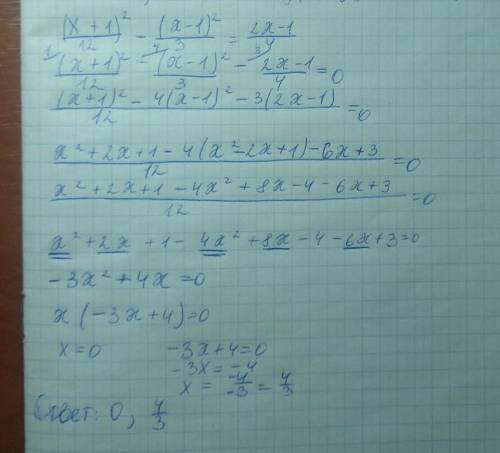 (x+1)²/12 - (x-1)²/3 = (2x-1)/4
¹⁾(x+1)²/12 - ⁴⁾(x-1)²/3 - ³⁾(2x-1)/4 = 0
((x+1)² - 4(x-1)² - 3(2x-1))/12 = 0
(x²+2x+1-4(x²-2x+1)-6x+3)/12 = 0
(x²+2x+1-4x²+8x-4-6x+3)/12 = 0
x²+2x+1-4x²+8x-4-6x+3=0
-3x²+4x=0
x(-3x+4)=0
x=0 -3x+4=0
-3x=-4
x = -4/-3 = 4/3
Ответ: 0, 4/3